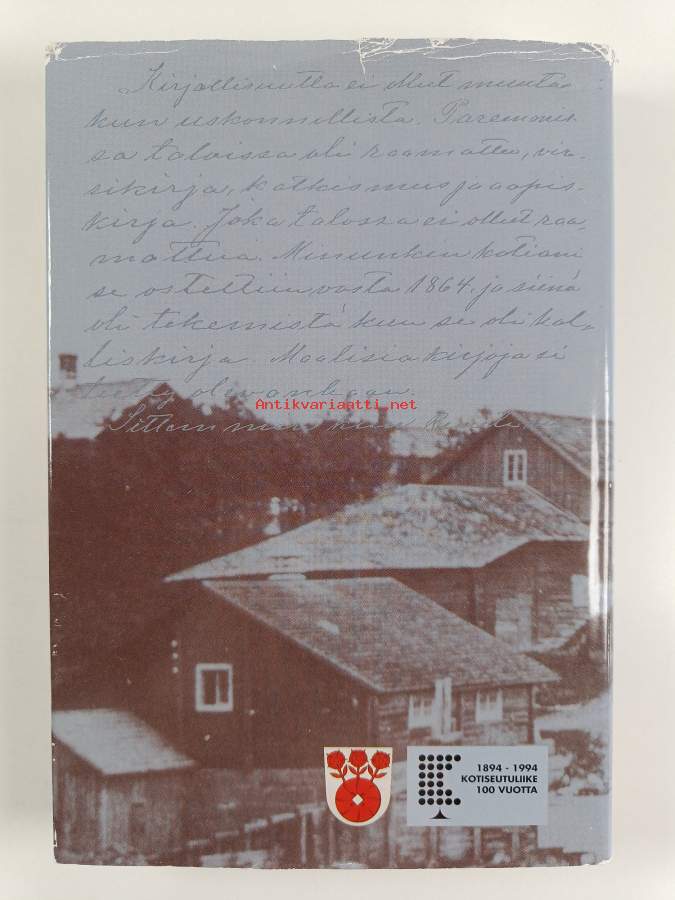 Kirjallisuutta ei ollut muuta
kun uskonnollista. Paremmis-
sa taloissa oli raamattu, vir-
sikirja, katkismus ja aapis-
kirja. Joka talossa ei ollut raa-
mattua. Minunkin kotiani
se ostettiin vasta 1864. ja siinä
oli tekemistä kun se oli kal-
liskirja. Maalisia kirjoja ei
Antikvariaatti.net
Sitten kun
1894 - 1994
KOTISEUTULIIKE
100 VUOTTA